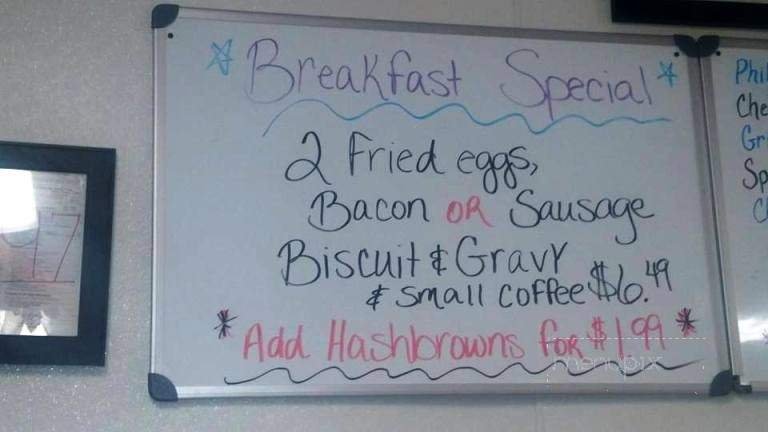 Breakfast Special
2 Fried eggs,
Bacon OR Sausage
Biscuit & Gravy
& small coffee $6.49
* Add Hashbrowns for $1.99 *
menupix
47
Phil
Che
Gr
Sp